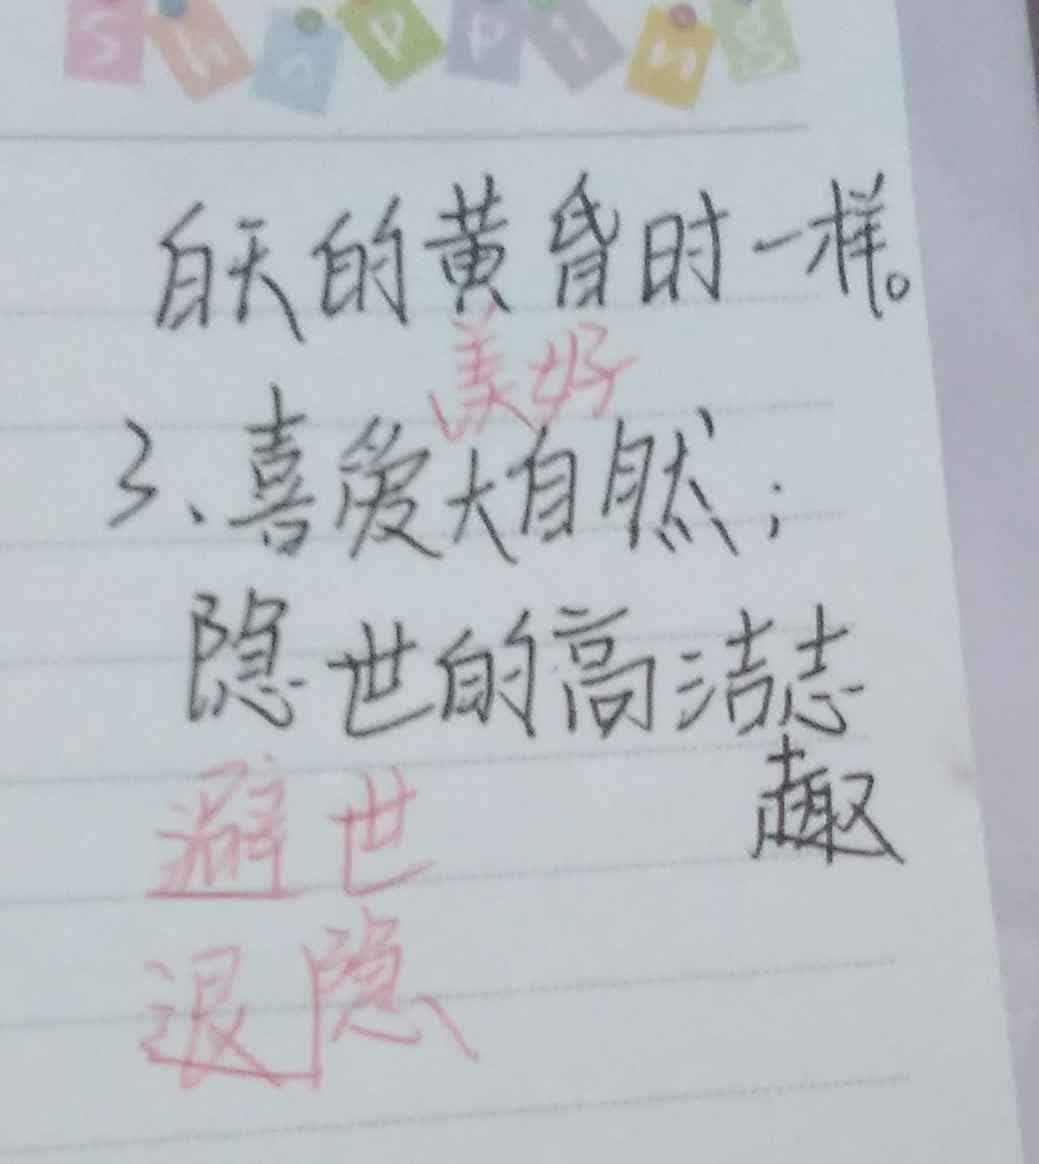 Shopping
白天的黄昏时一样。
美好
3、喜爱大自然；
隐世的高洁志
趣
避世
退隐